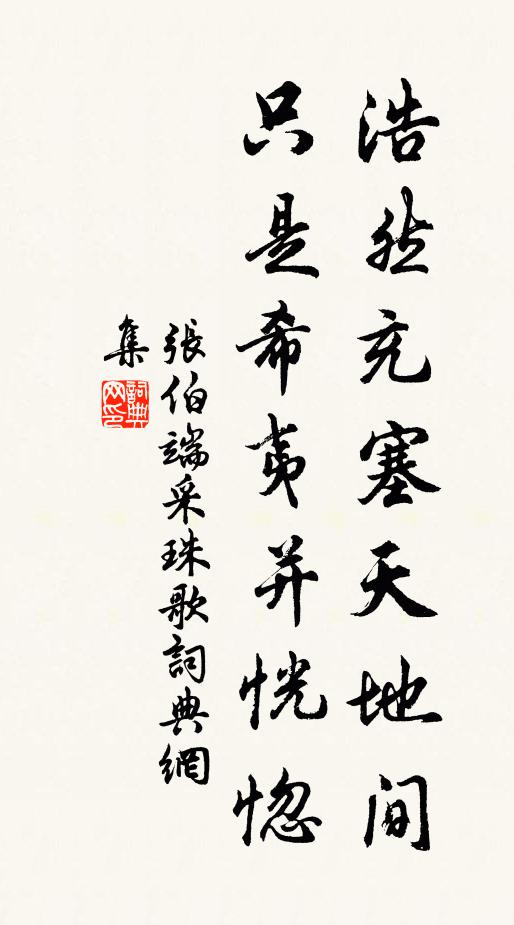 浩然充塞天地间
只是希夷并恍惚
張伯端采珠歌詞典網
集
詞典
网印